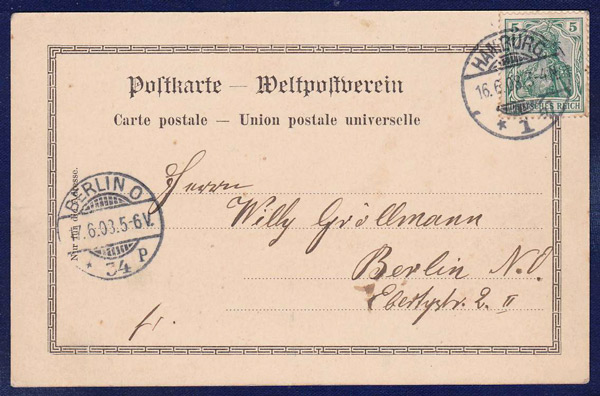 5 5
DEUTSCHES REICH
HAMBURG
16.6.03.3-4N.
* 1
Postkarte — Weltpostverein
Carte postale — Union postale universelle
BERLIN O
.6.03.5-6V.
* 34 P
Nur für die Adresse.
Herrn
Willy Gröllmann
Berlin N.O.
Ebertystr. 2. II
fr.